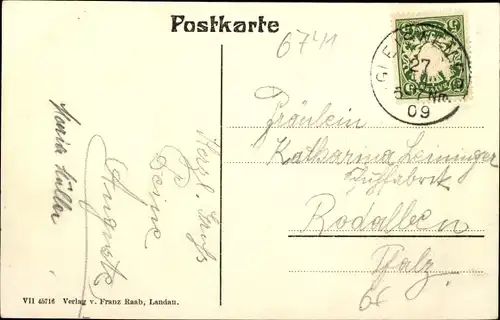 Postkarte
6741
GLEISWEILER
27
5-7 Nm.
09
Fräulein
Katharina Leininger
Schuhfabrik
Rodalben
Pfalz
6x
Herzl. Gruß
Deine
Auguste
Maria Müller
VII 45716 Verlag v. Franz Raab, Landau.